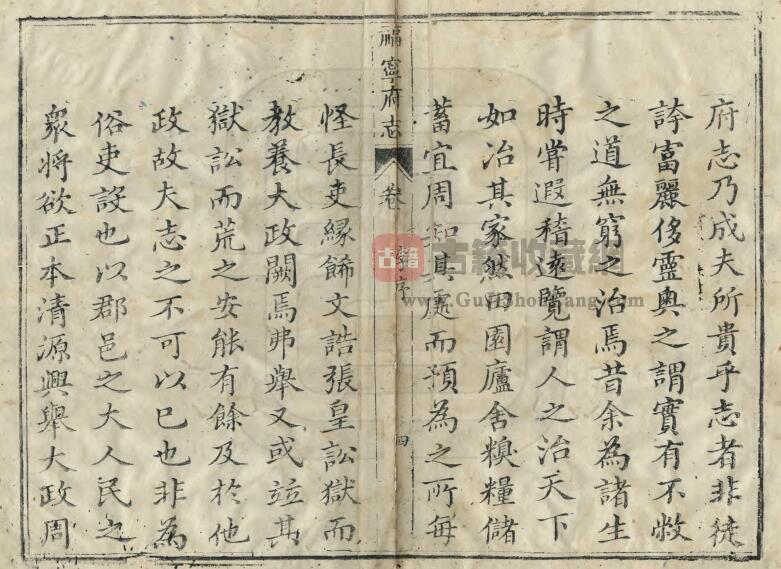 府志乃成夫所貴乎志者非徒
誇富麗侈靈奥之謂實有不敝
之道無窮之治焉昔余為諸生
時嘗遐稽遠覽謂人之治天下
如治其家然田園廬舍糗糧儲
蓄宜周知其處而預為之所每
福寧府志 卷 序 四
怪長吏緣餙文誥張皇訟獄而
教養大政闕焉弗舉又或竝其
獄訟而荒之安能有餘及於他
政故夫志之不可以已也非為
俗吏設也以郡邑之大人民之
衆將欲正本清源興舉大政周
古籍
古籍收藏網
www.GuJiShouCang.com